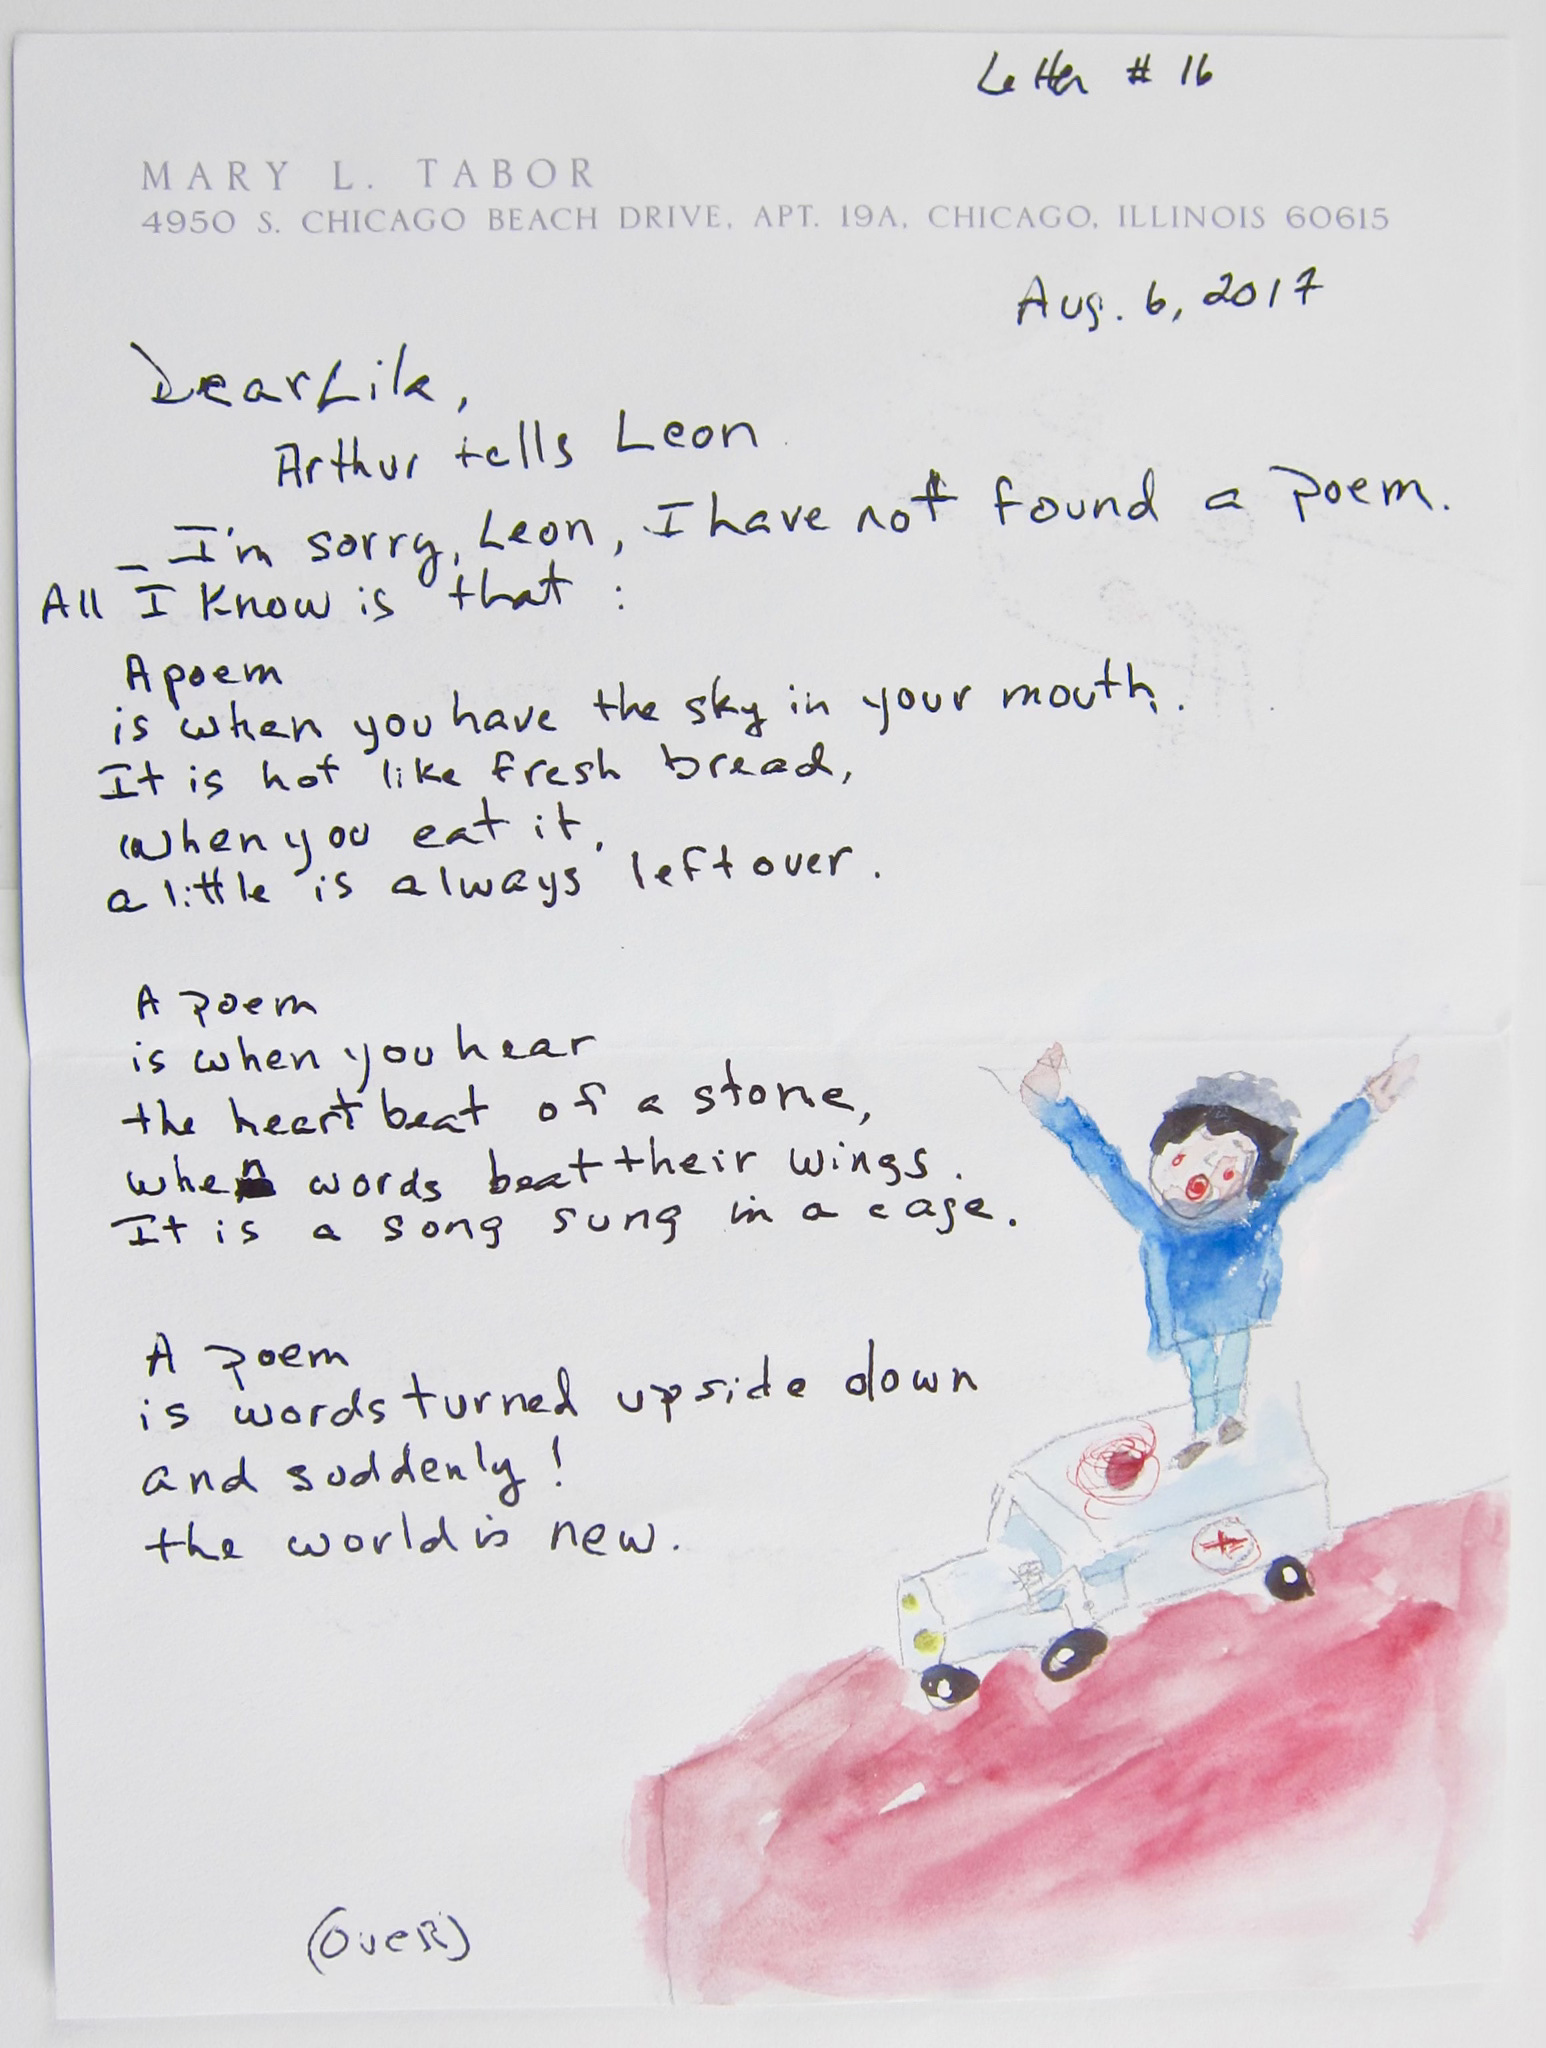 Letter # 16
MARY L. TABOR
4950 S. CHICAGO BEACH DRIVE, APT. 19A, CHICAGO, ILLINOIS 60615
Aug. 6, 2017
Dear Lik,
Arthur tells Leon
– I'm sorry, Leon, I have not found a poem.
All I know is that :
A poem
is when you have the sky in your mouth.
It is hot like fresh bread,
when you eat it,
a little is always left over.
A poem
is when you hear
the heart beat of a stone,
when words beat their wings.
It is a song sung in a cage.
A poem
is words turned upside down
and suddenly!
the world is new.
(Over)